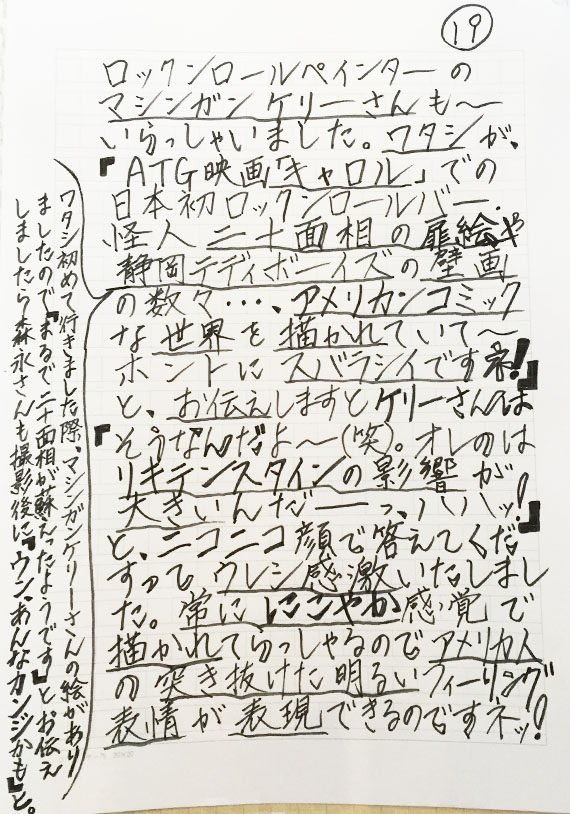 19
ロックンロールペインターの
マシンガンケリーさんも〜
いらっしゃいました。ワタシが、
『ATG映画「キャロル」での
日本初ロックンロールバー.
怪人二十面相の扉絵や
静岡テディボーイズの壁画
の数々…、アメリカンコミック
な世界を描かれていて〜
ホントにスバラシイですネ!』
と、お伝えしますとケリーさんは
『そうなんだよ〜(笑)。オレのは
リキテンスタインの影響が
大きいんだーーっ、ハハハッ!』
と、ニコニコ顔で答えてくだ
すってウレシ感激いたしまし
た。常ににこやか感覚で
描かれてらっしゃるのでアメリカ人
の突き抜けた明るいフィーリング
表情が表現できるのですネッ!
ワタシ初めて行きました際、マシンガンケリーさんの絵があり
ましたので『まるで二十面相が蘇えったようです』とお伝え
しましたら森永さんも撮影後に『ウン、あんなカンジかも』と。